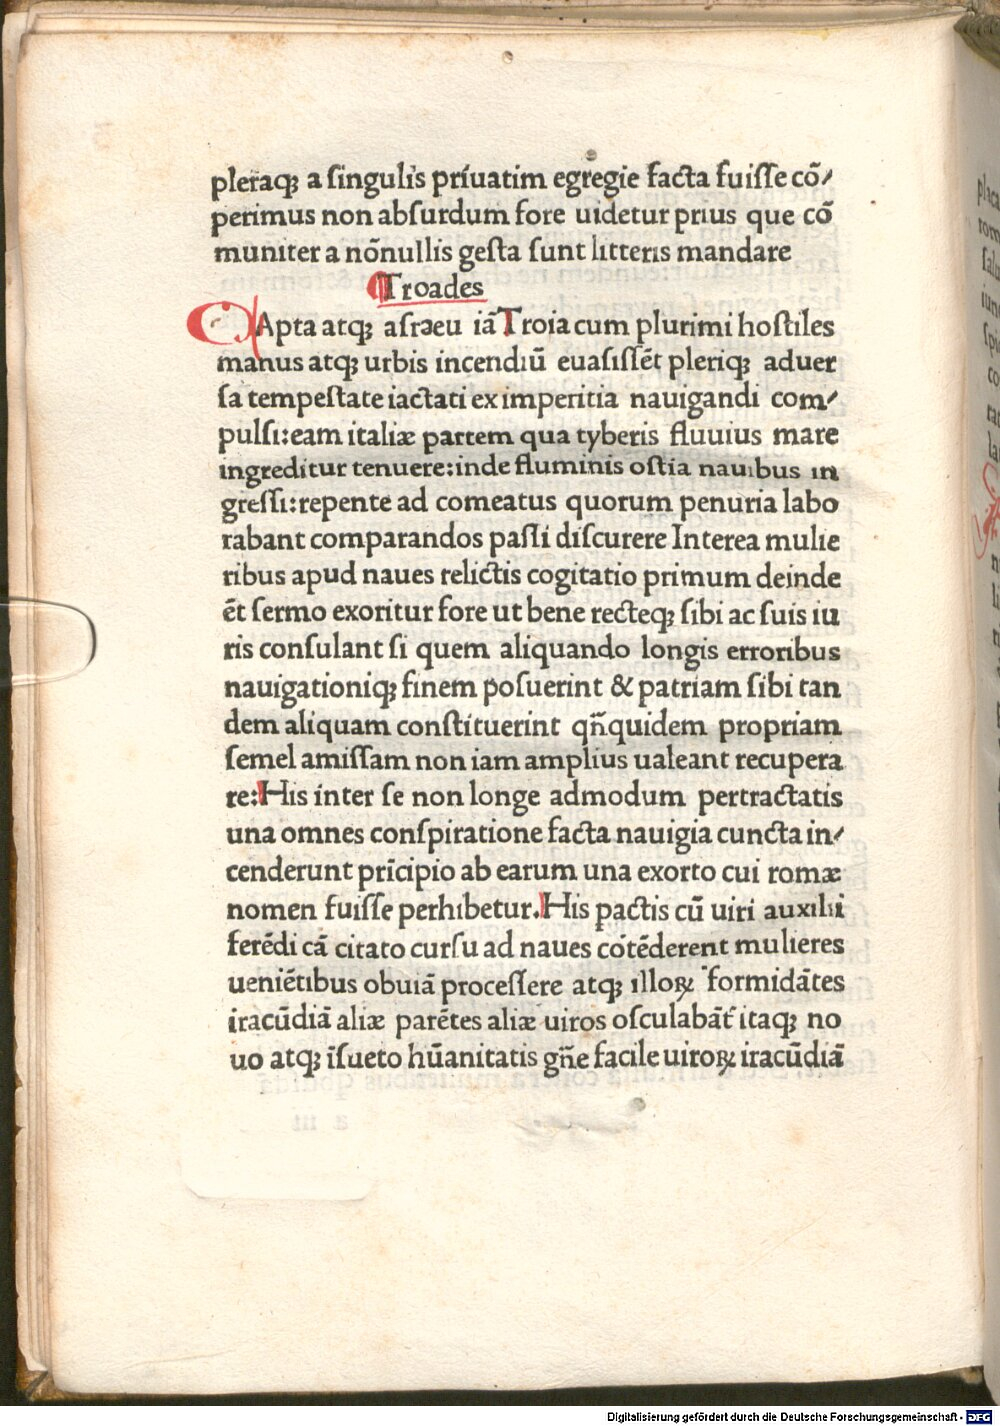 pleraqꝫ a singulis príuatim egregie facta fuisse cõ/
perimus non absurdum fore uidetur prius que cõ
muniter a nõnullis gesta sunt litteris mandare
¶Troades
CApta atqꝫ asraeu iã Troia cum plurimi hostiles
manus atqꝫ urbis incendiũ euasissẽt pleriqꝫ aduer
sa tempestate iactati ex imperitia nauigandi com/
pulsi:eam italiæ partem qua tyberis fluuius mare
ingreditur tenuere:inde fluminis ostia nauibus in
gressi:repente ad comeatus quorum penuria labo
rabant comparandos passi discurere Interea mulie
ribus apud naues relictis cogitatio primum deinde
ẽt sermo exoritur fore ut bene recteqꝫ sibi ac suis iu
ris consulant si quem aliquando longis erroribus
nauigationiqꝫ finem posuerint & patriam sibi tan
dem aliquam constituerint qñquidem propriam
semel amissam non iam amplius ualeant recupera
re:His inter se non longe admodum pertractatis
una omnes conspiratione facta nauigia cuncta in/
cenderunt prĩcipio ab earum una exorto cui romæ
nomen fuisse perhibetur.His pactis cũ uiri auxilii
ferẽdi cã citato cursu ad naues cõtẽderent mulieres
ueniẽtibus obuiã processere atqꝫ illoꝝ formidãtes
iracũdiã aliæ parẽtes aliæ uiros osculabãt̃ itaqꝫ no
uo atqꝫ ĩsueto hũanitatis gñe facile uiroꝝ iracũdiã
Digitalisierung gefördert durch die Deutsche Forschungsgemeinschaft - DFG